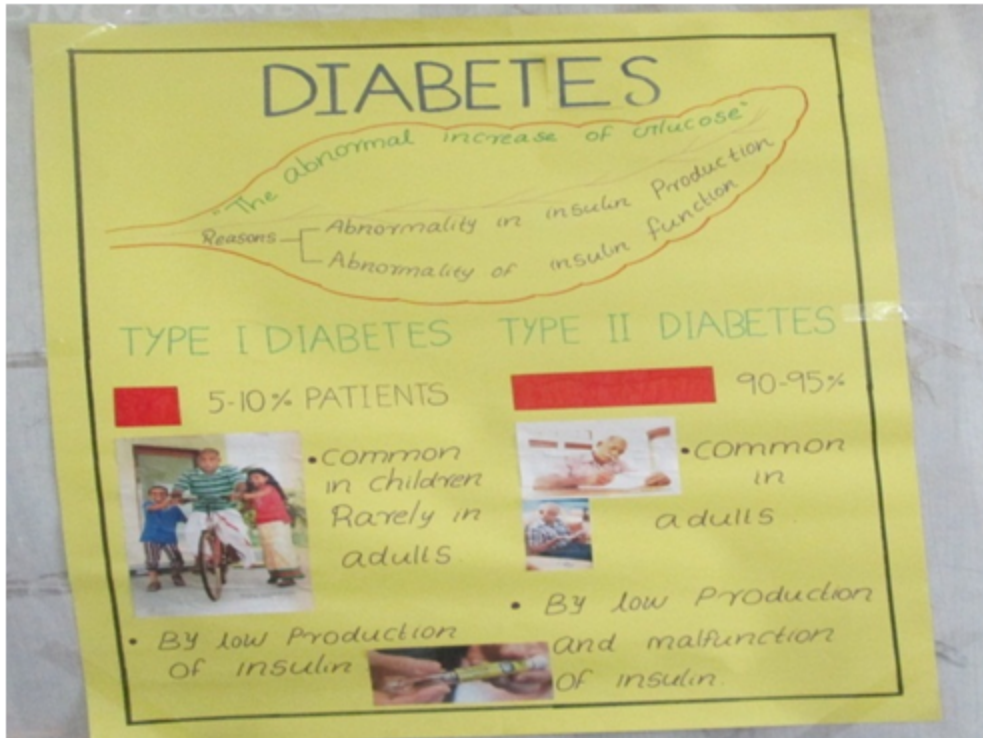 DIABETES
"The abnormal increase of Glucose"
Reasons
Abnormality in insulin Production
Abnormality of insulin function
TYPE I DIABETES
5-10% PATIENTS
• Common
in children
Rarely in
adults
• By low Production
of insulin
TYPE II DIABETES
90-95%
• Common
in
adults
• By low Production
and malfunction
of insulin.